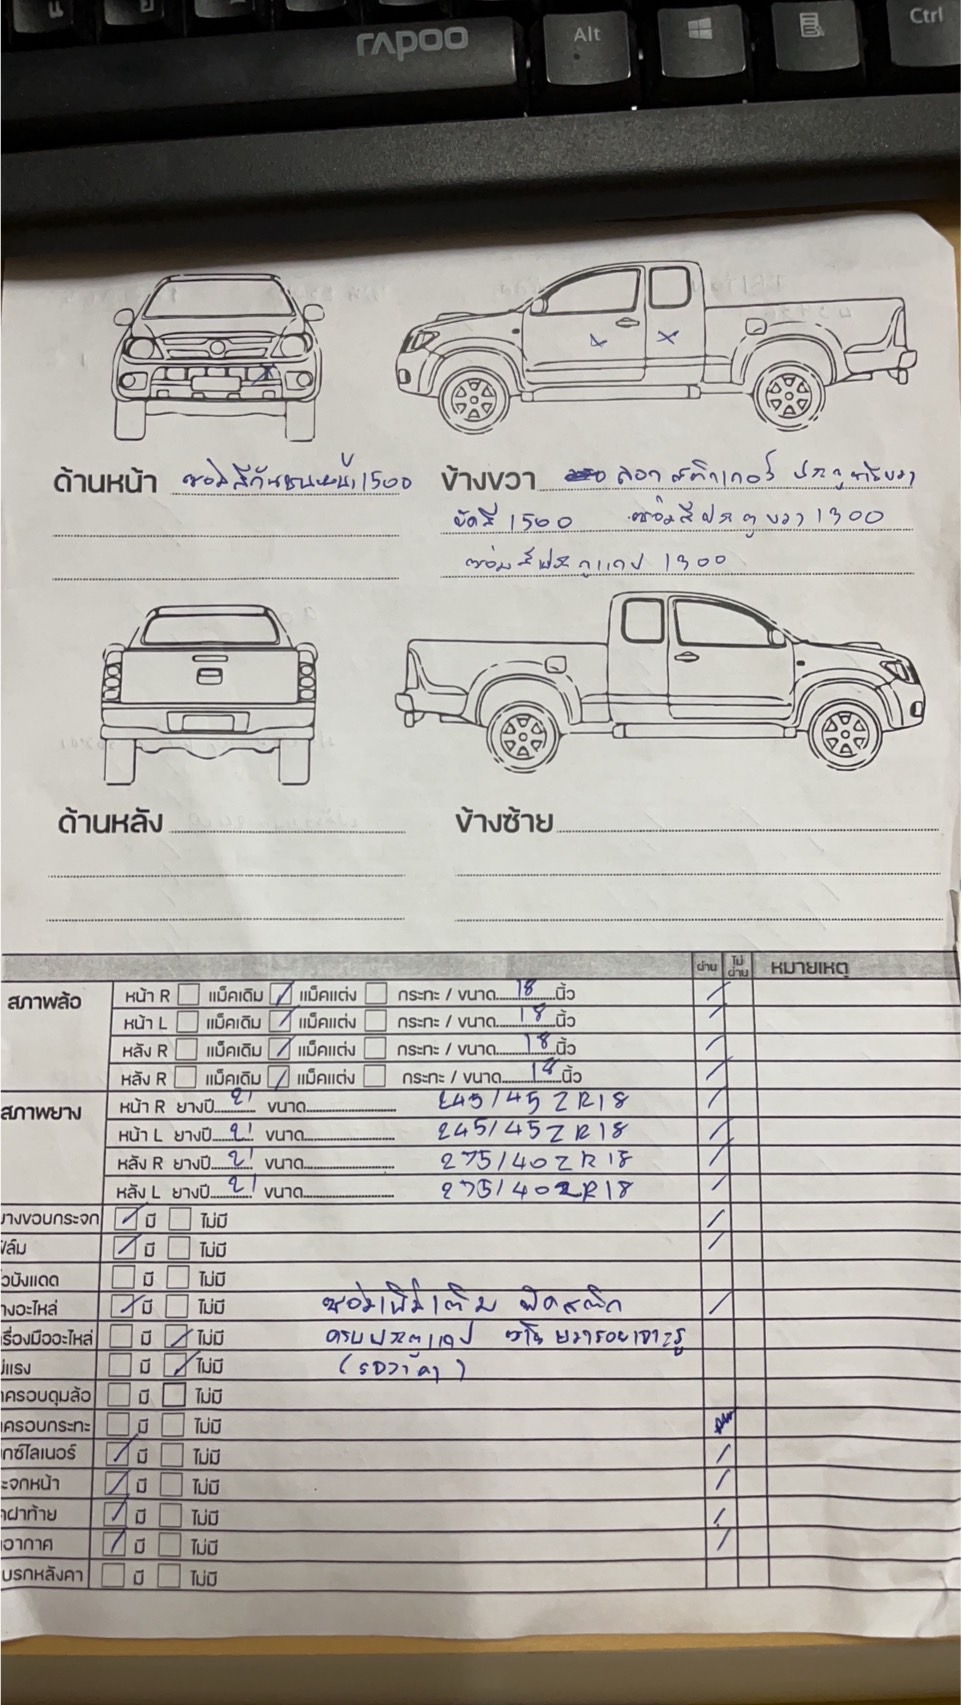 rapoo Alt Ctrl
ด้านหน้า ซ่อมสีกันชนหน้า 1500 ข้างขวา ลอกสติ๊กเกอร์ ประตู
ขัดสี 1500 ซ่อมสีประตูขวา 1300
ซ่อมสีประตูแคป 1300
ด้านหลัง ข้างซ้าย
ผ่าน ไม่ผ่าน หมายเหตุ
สภาพล้อ หน้า R แม็คเดิม แม็คแต่ง กระทะ / ขนาด 18 นิ้ว
หน้า L แม็คเดิม แม็คแต่ง กระทะ / ขนาด 18 นิ้ว
หลัง R แม็คเดิม แม็คแต่ง กระทะ / ขนาด 18 นิ้ว
หลัง R แม็คเดิม แม็คแต่ง กระทะ / ขนาด 18 นิ้ว
สภาพยาง หน้า R ยางปี 21 ขนาด 245/45 ZR18
หน้า L ยางปี 21 ขนาด 245/45 ZR18
หลัง R ยางปี 21 ขนาด 275/40 ZR18
หลัง L ยางปี 21 ขนาด 275/40 ZR18
างขอบกระจก มี ไม่มี
ฟิล์ม มี ไม่มี
วบังแดด มี ไม่มี
างอะไหล่ มี ไม่มี ซ่อมเพิ่มเติม
รื่องมืออะไหล่ มี ไม่มี ครบ
ม่แรง มี ไม่มี
ครอบดุมล้อ มี ไม่มี
ครอบกระทะ มี ไม่มี
กซ์ไลเนอร์ มี ไม่มี
ะจกหน้า มี ไม่มี
ฝาท้าย มี ไม่มี
อากาศ มี ไม่มี
บรกหลังคา มี ไม่มี